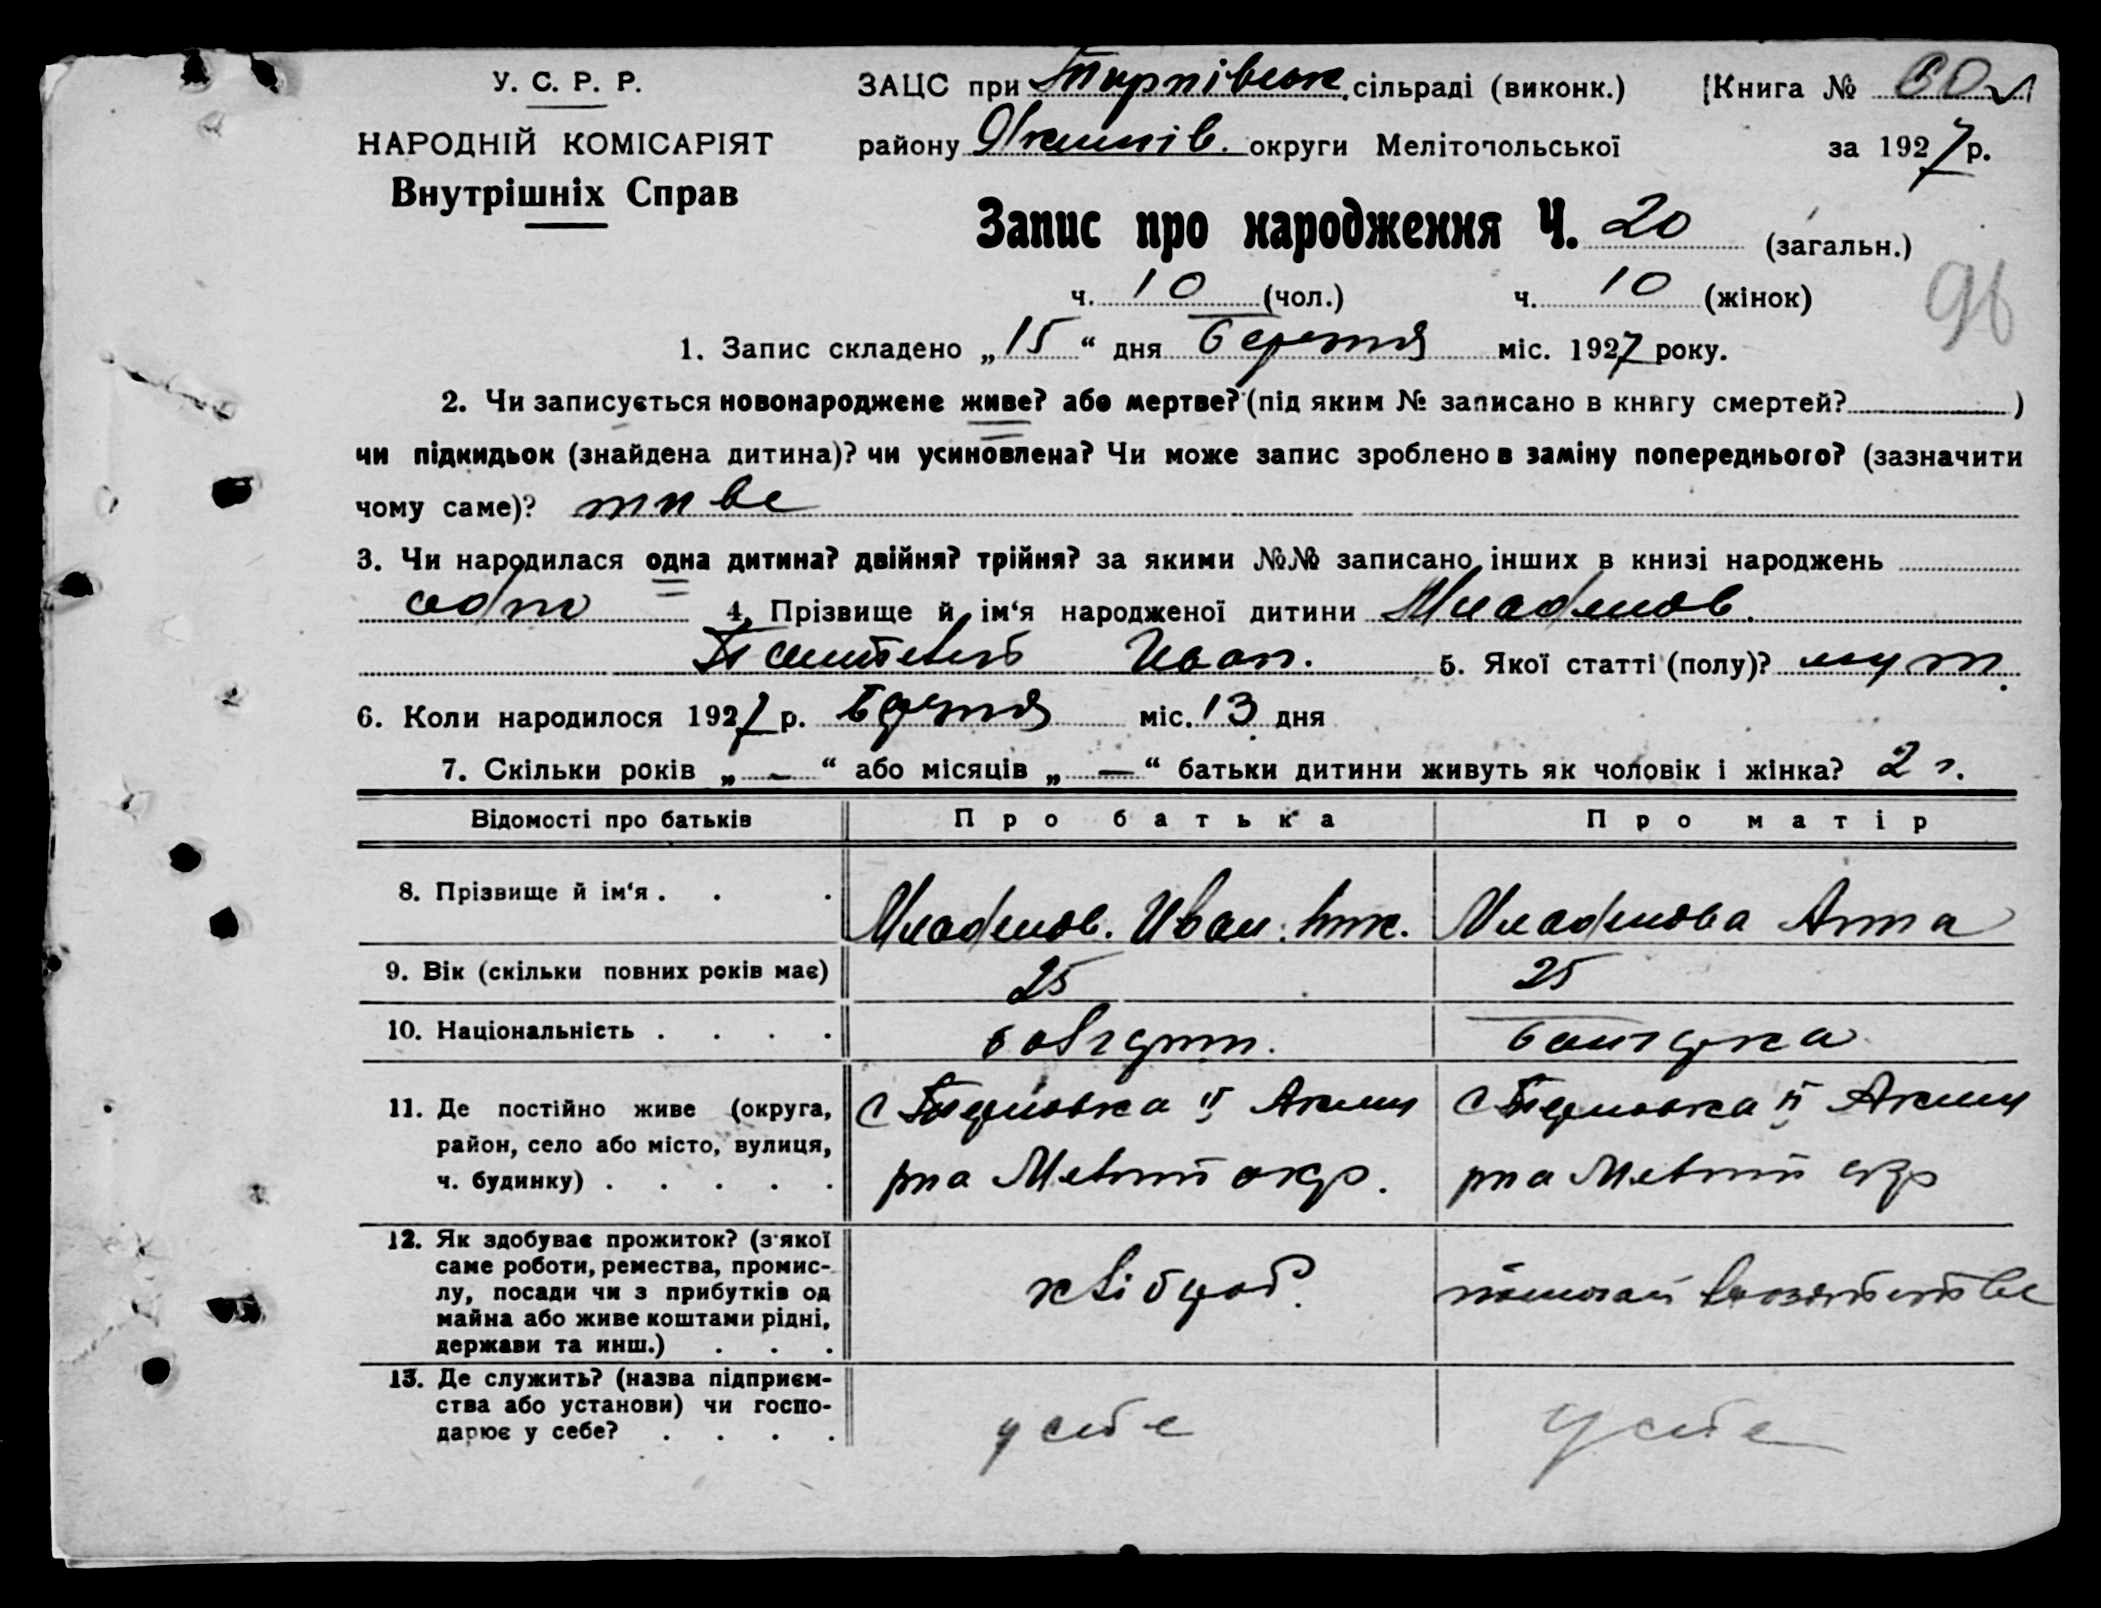 У. С. Р. Р.
НАРОДНІЙ КОМІСАРІЯТ
Внутрішніх Справ
ЗАЦС при сільраді (виконк.) Книга №
району Якимів. округи Мелітопольської за 1927 р.
Запис про народження Ч. 20 (загальн.)
ч. 10 (чол.) ч. 10 (жінок)
96
1. Запис складено „15“ дня березня міс. 1927 року.
2. Чи записується новонароджене живе? або мертве? (під яким № записано в книгу смертей? )
чи підкидьок (знайдена дитина)? чи усиновлена? Чи може запис зроблено в заміну попереднього? (зазначити
чому саме)? живе
3. Чи народилася одна дитина? двійня? трійня? за якими №№ записано інших в книзі народжень
одно 4. Прізвище й ім‘я народженої дитини Младенов.
Иван. 5. Якої статті (полу)? муж.
6. Коли народилося 1927 р. березня міс. 13 дня
7. Скільки років „—“ або місяців „—“ батьки дитини живуть як чоловік і жінка? 2 г.
Відомості про батьків Про батька Про матір
8. Прізвище й ім‘я . . . Младенов. Иван. Ник. Младенова Анна
9. Вік (скільки повних років має) 25 25
10. Національність . . . . болгарин. болгарка
11. Де постійно живе (округа, район, село або місто, вулиця, ч. будинку) . . . . .
с II Аким
рна Меліт окр.
с II Аким
рна Меліт окр
12. Як здобуває прожиток? (з‘якої саме роботи, ремества, промислу, посади чи з прибутків од майна або живе коштами рідні, держави та инш.) . . .
хлібороб.
13. Де служить? (назва підприємства або установи) чи господарює у себе? . . . .
у себе
у себе